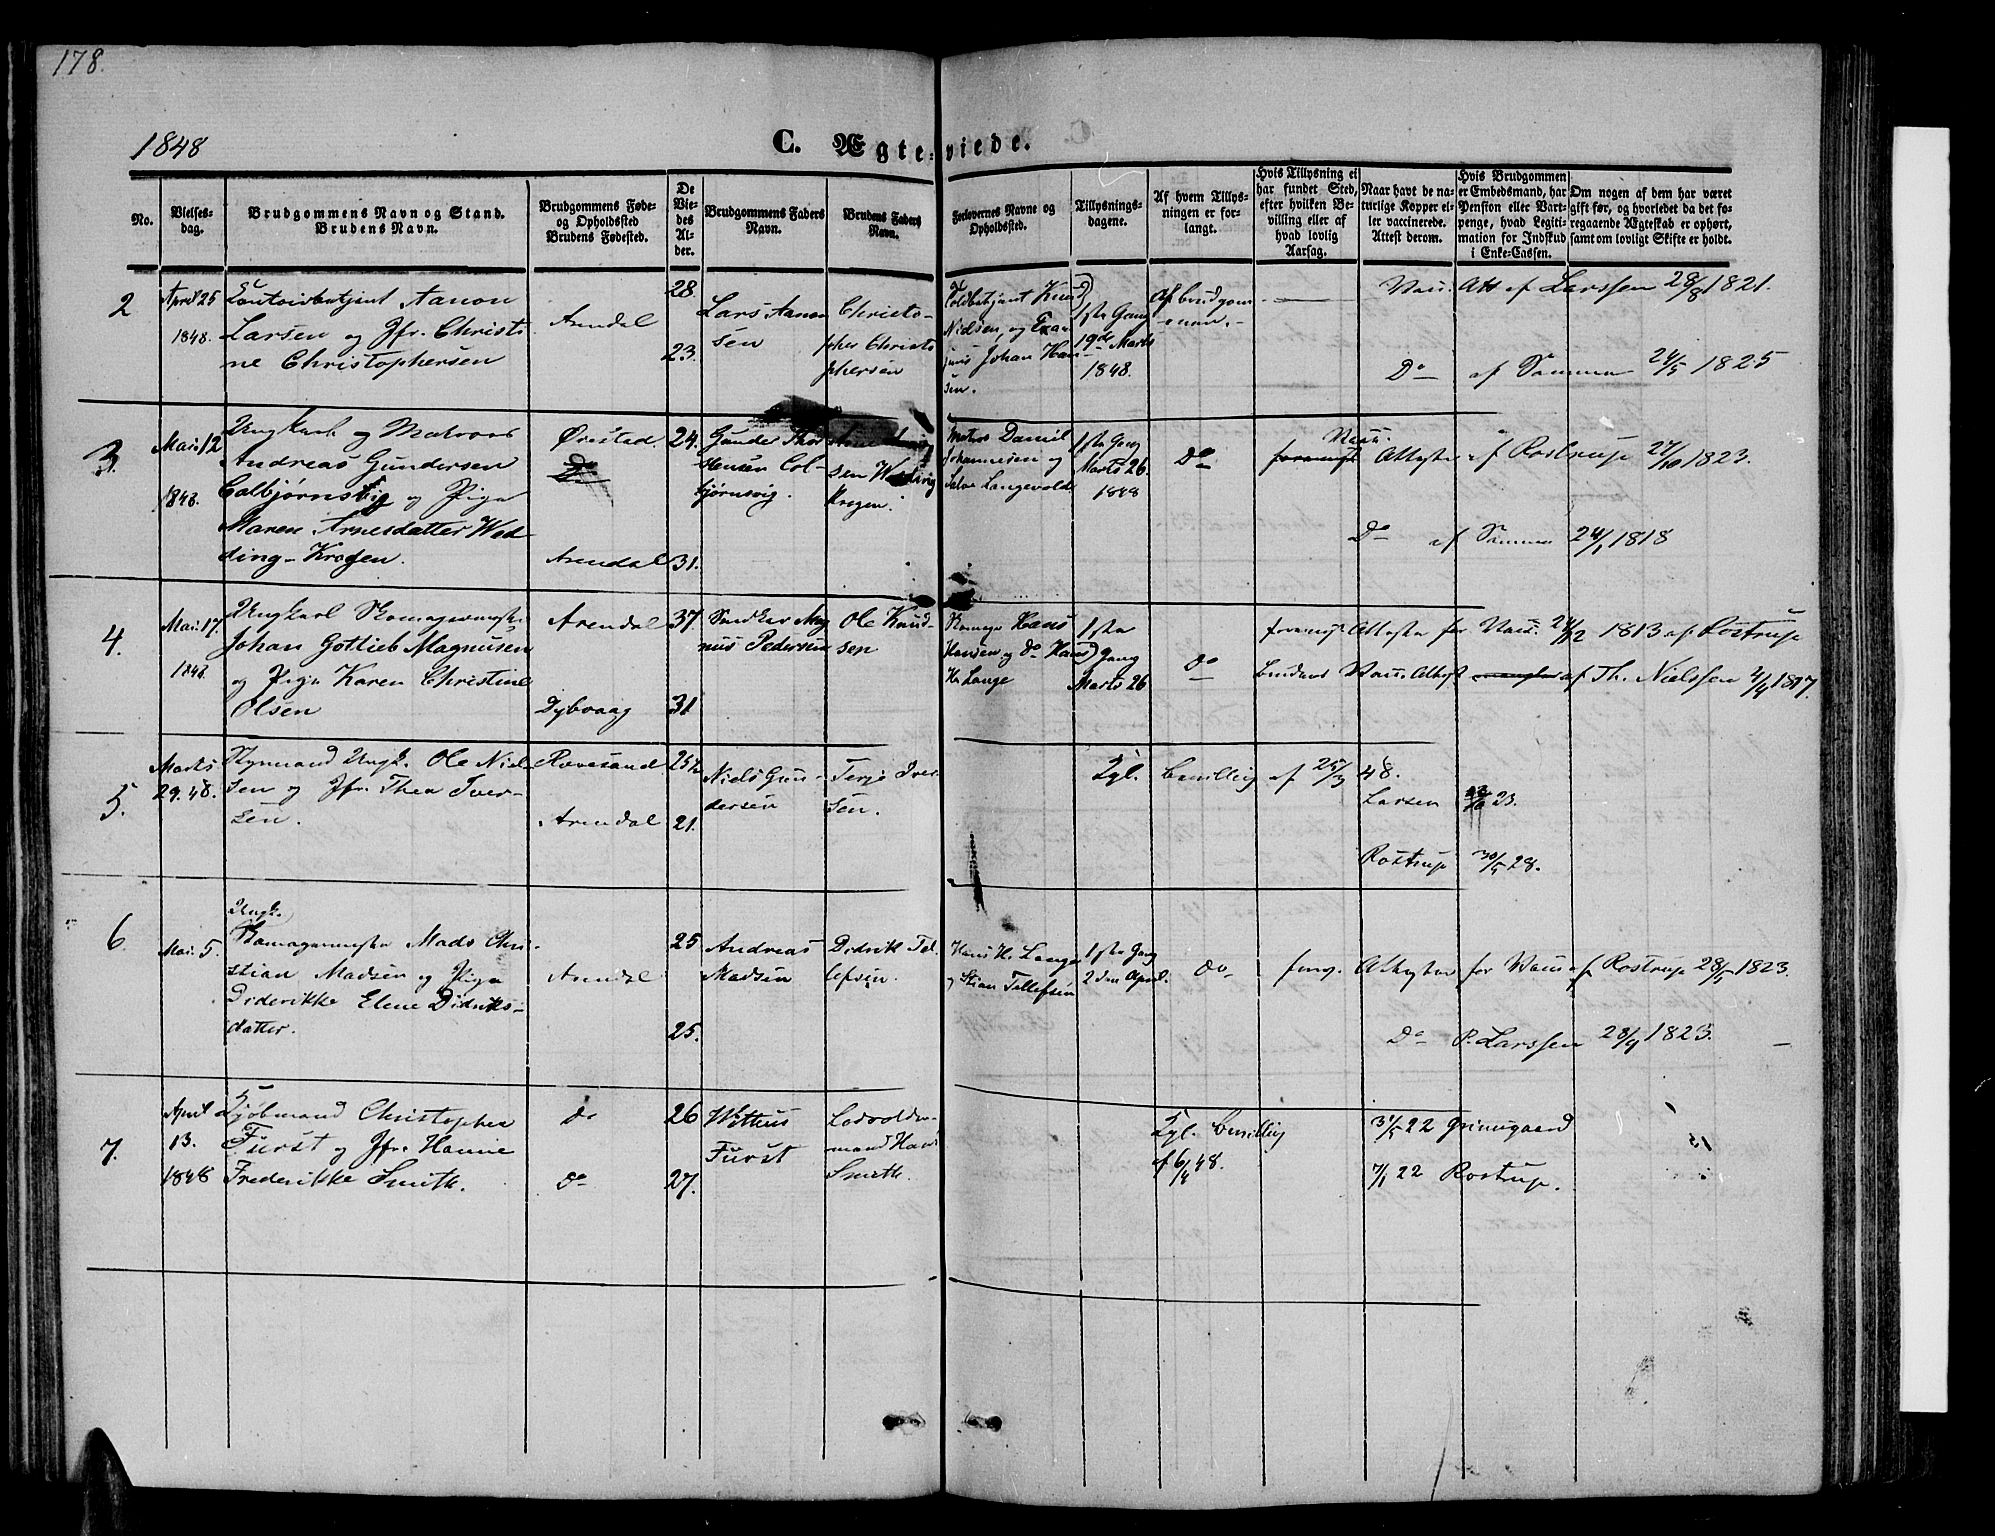 178.
1848
C. Ægteviede.
No.
Vielses-
dag.
Brudgommens Navn og Stand.
Brudens Navn.
Brudgommens Føde-
og Opholdssted
Brudens Fødested.
De
Vie-
des
Al-
der.
Brudgommens Faders
Navn.
Brudens Faders
Navn.
Forlovernes Navne og
Opholdssted.
Tillysnings-
dagene.
Af hvem Tillys-
ningen er for-
langt.
Hvis Tillysning ei
har fundet Sted,
efter hvilken Be-
villing eller af
hvad lovlig
Aarsag.
Naar havt de na-
turlige Kopper el-
ler vaccinerede.
Attest derom.
Hvis Brudgommen
er Embedsmand, har
Pension eller Vart-
penge, hvad Legiti-
mation for Indskud
i Enke-Cassen.
Om nogen af dem har været
gift før, og hvorledet da det fo-
regaaende Ægteskab er ophørt,
samt om lovligt Skifte er holdt.
2
April 25
1848.
Aanon
Larsen og Jfr. Christi
ne Christophersen
Arendal
28.
23.
Lars Aanon
sen
Christo-
pher Christo
phersen
Toldbetjent Knud
Nielsen, og
Johan Han
sen.
1ste Gang
19de Marts
1848.
Af brudgom-
men.
Vacc. Att af Larssen 28/8 1821.
Do af Samme 24/5 1825
3.
Mai 12
1848.
Ungkarl og Matros
Andreas Gundersen
Colbjørnsvig og Pige
Maren Arnesdatter Wed
ding-Krogen.
Øiestad.
Do
Arendal
24.
31.
Gunder Thor
stensen Col-
bjørnsvig.
sen Wedding
Krogen.
Matros Daniel
Johannesen og
Salve Langevold
1ste Gang
Marts 26
1848
Do
Vacc.
Attester af Rostrup 27/10 1823.
Do af Samme 24/1 1818
4.
Mai 17.
1848.
Ungkarl Skomagermester
Johan Gottlieb Magnusen
og Pige Karen Christine
Olsen
Arendal
Dybvaag
37.
31
Snedker Mag
nus Pedersen
Ole Knud-
sen
Skomager Hans
Hansen og Do Hans
H. Lange
1ste
Gang
Marts 26
Do
Attester for Vacc. 24/12 1813 af Rostrup
Brudens Vacc. Attest af Th. Nielssen 4/4 1817.
5.
Marts
29. 48.
Ungk. Ole Niel-
sen og Jfr. Thea Iver-
sen.
Revesand
Arendal
25½
21.
Niels Gun-
dersen
Terje Iver
sen.
Kgl. Bevilling af 25/3 48.
Larsen 23.
Rostrup 30/5 28.
6.
Mai 5.
Ungk.
Skomagermester Mads Chri-
stian Madsen og Pige
Diderikke Elene Didriks-
datter.
Arendal
25.
25.
Andreas
Madsen
Didrik Tel
lefsen.
Hans H. Lange
og Stian Tellefsen
1ste Gang
2den April.
do
Attester for Vacc. af Rostrup 28/5 1823.
Do P. Larssen 28/9 1823.
7.
April
13.
1848
Kjøbmand Christopher
Furst og Jfr. Hanne
Frederikke Smith.
do
do
26
27.
Furst
Smith.
Kgl. Bevilling
af 6/4 48.
31/5 22 Grimsgaard
7/1 22 Rostrup.